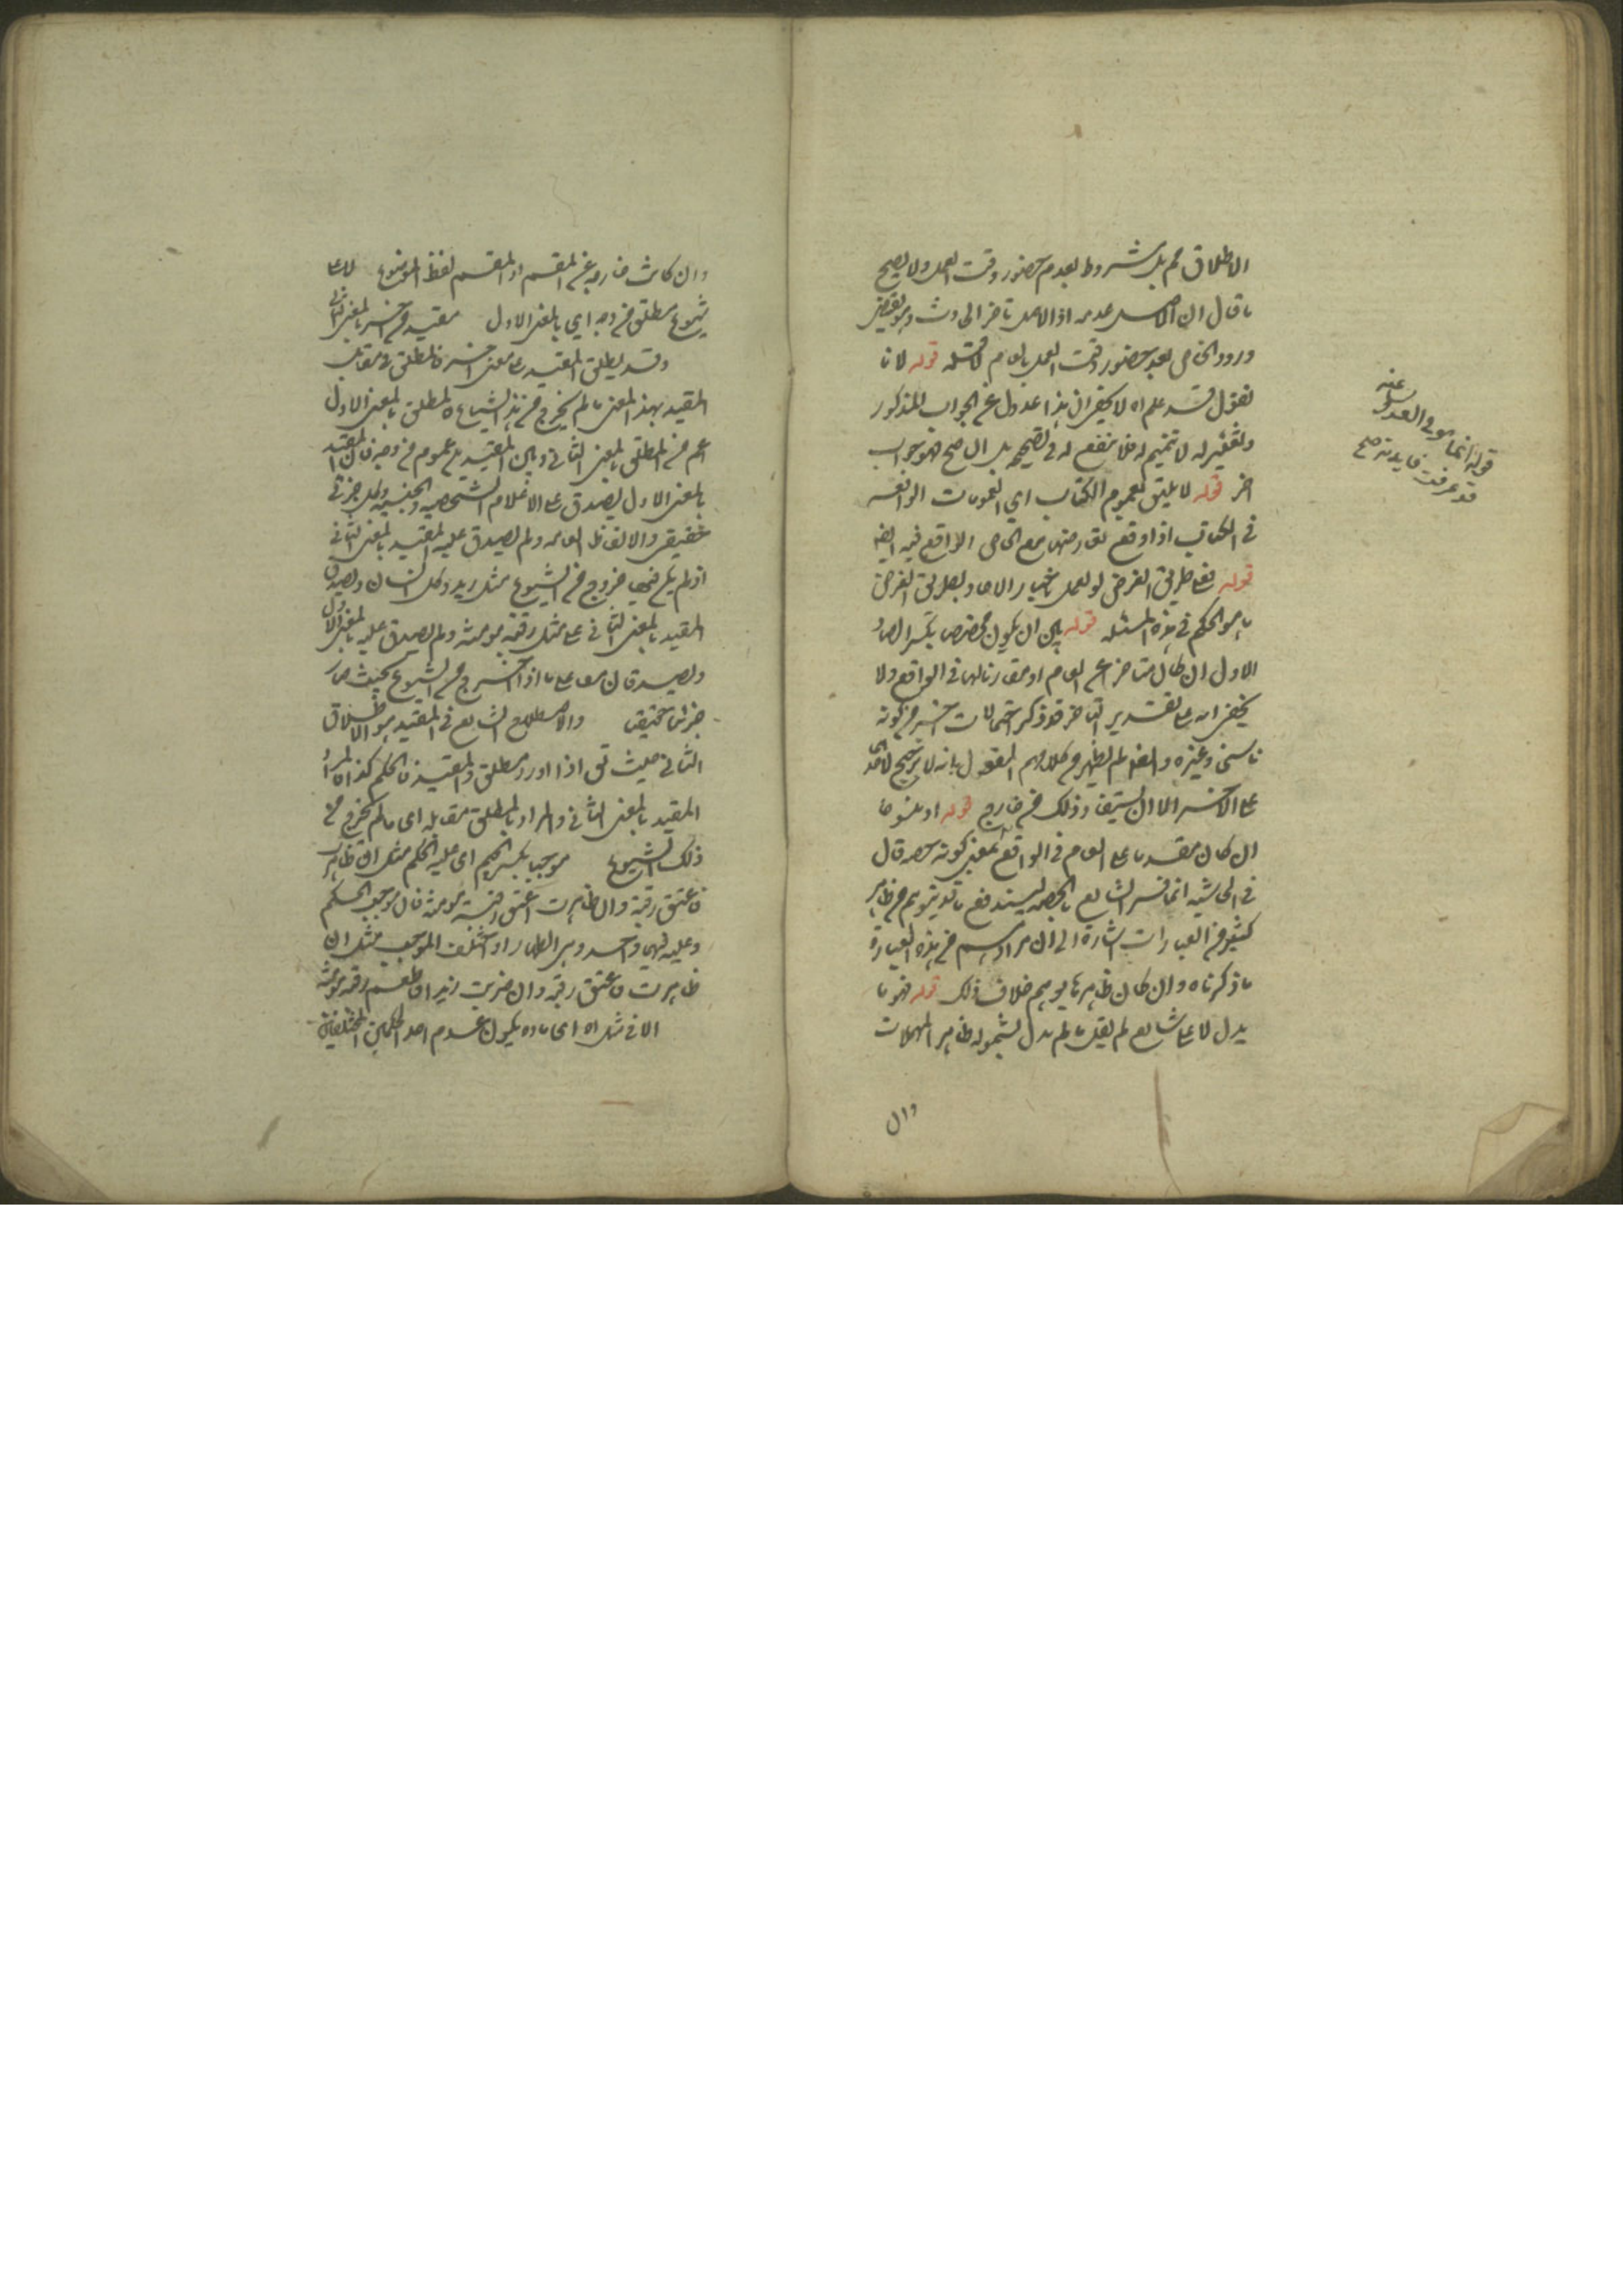 الاطلاق ثم بل مشروط بعدم حضور وقت العمل ولا يصح
ما قال ان الاصل عدمه اذ الاصل تاخر الحادث وهو يقتضي
ورود الخاص بعد حضور وقت العمل بالعام لا قبله قوله لانا
نقول قد علم اه لا يخفى ان هذا عدول عن الجواب المذكور
وتغيير له لا تتميم له فلا ينفع له في تصحيحه بل ان صح فهو جواب
اخر قوله لا يليق بعموم الكتاب اي العمومات الواقعة
في الكتاب اذا وقع تعارضها مع الخاص الواقع فيه ايضا
قوله فعلى طريق الفرض لو لعمل باخبار الاحاد وبطريق الفرض
ما هو الحكم في هذه المسئلة قوله بين ان يكون مخصصا بكسر الصاد
الاول ان كان متاخرا عن العام او مقارنا لها في الواقع ولا
يخفى انه على تقدير التاخر قد ذكر احتمالات اخر من كونه
ناسخا وغيره وايضا لم يظهر من كلامهم القول بانه لا ترجيح لاحدها
على الاخر الا ان يستفاد ذلك من خارج قوله او منسوخا
ان كان مقدما على العام في الواقع بمعنى كونه حصة قال
في الحاشية انما فسر الشايع بالحصة ليندفع ما قد يتوهم من ظاهر
كثير من العبارات اشارة الى ان مرادهم من هذه العبارة
ما ذكرناه وان كان ظاهرها يوهم خلاف ذلك قوله فهو ما
يدل لا على شايع لم يقل ما لم يدل لشموله ظاهر المهملات
وان
قوله انما هو في العدول عنه
قد عرفت فايدته صح
وان كانت خارجة عن المقسم اذ المقسم لفظ الموضوع لا على
شيوع مطلق من وجه اي بالمعنى الاول مقيد من اخر بالمعنى الثاني
وقد يطلق المقيد على معنى اخر فالمطلق في مقابل
المقيد بهذا المعنى ما لم يخرج من هذا الشياع والمطلق بالمعنى الاول
اعم من المطلق بالمعنى الثاني وبين المقيدين عموم من وجه فان المقيد
بالمعنى الاول يصدق على الاعلام الشخصية والجنسية وكل جزئي
حقيقي والالفاظ العامة ولم يصدق عليه المقيد بالمعنى الثاني
اذ لم يكن فيها خروج من الشيوع مثل زيد وكل انسان ويصدق
المقيد بالمعنى الثاني على مثل رقبة مومنة ولم يصدق عليه بالمعنى الاول
ويصدقان معا على ما اذا اخرج من الشيوع بحيث صار
جزئيا حقيقيا والاصطلاح الشايع في المقيد هو الاطلاق
الثاني حيث ق اذا اورد مطلق والمقيد فالحكم كذا اه المراد
المقيد بالمعنى الثاني والمراد بالمطلق مقابله اي ما لم يخرج من
ذلك الشيوع موجب بكسر الجيم اي علة الحكم مثل ان ظاهرت
فاعتق رقبة وان ظاهرت اعتق رقبة مومنة فان موجب الحكم
وعليه فيهما واحد وهو الظهار او اختلف الموجب مثل ان
ظاهرت فاعتق رقبة وان ضربت زيدا فاطعم رقبة مومنة
الا في مثل اه اي مادة يكون عدم احد الحكمين المختلفين